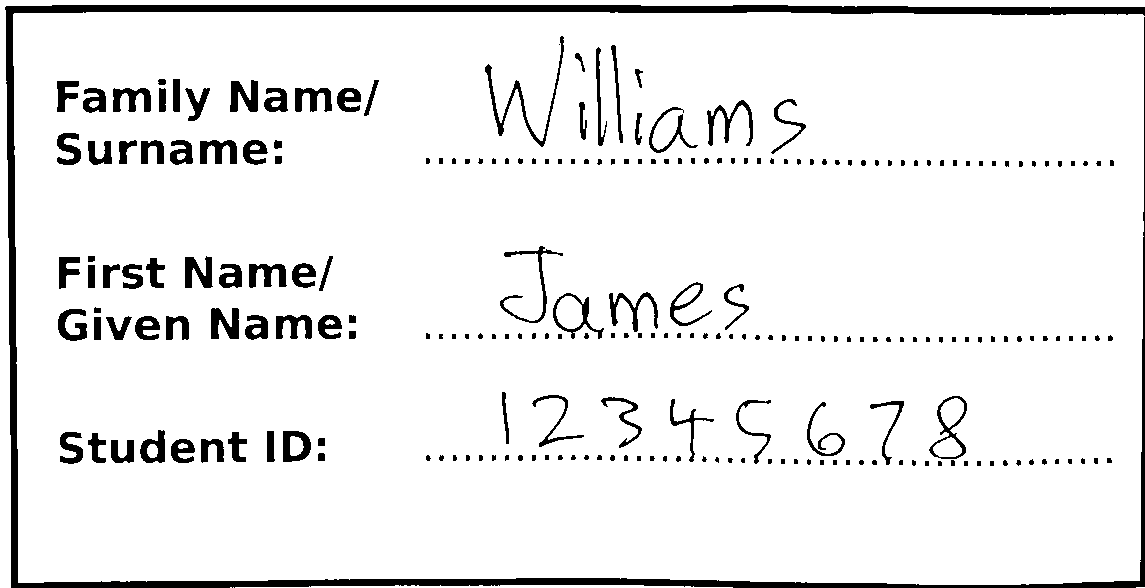 Family Name/
Surname: Williams
First Name/
Given Name: James
Student ID: 12345678